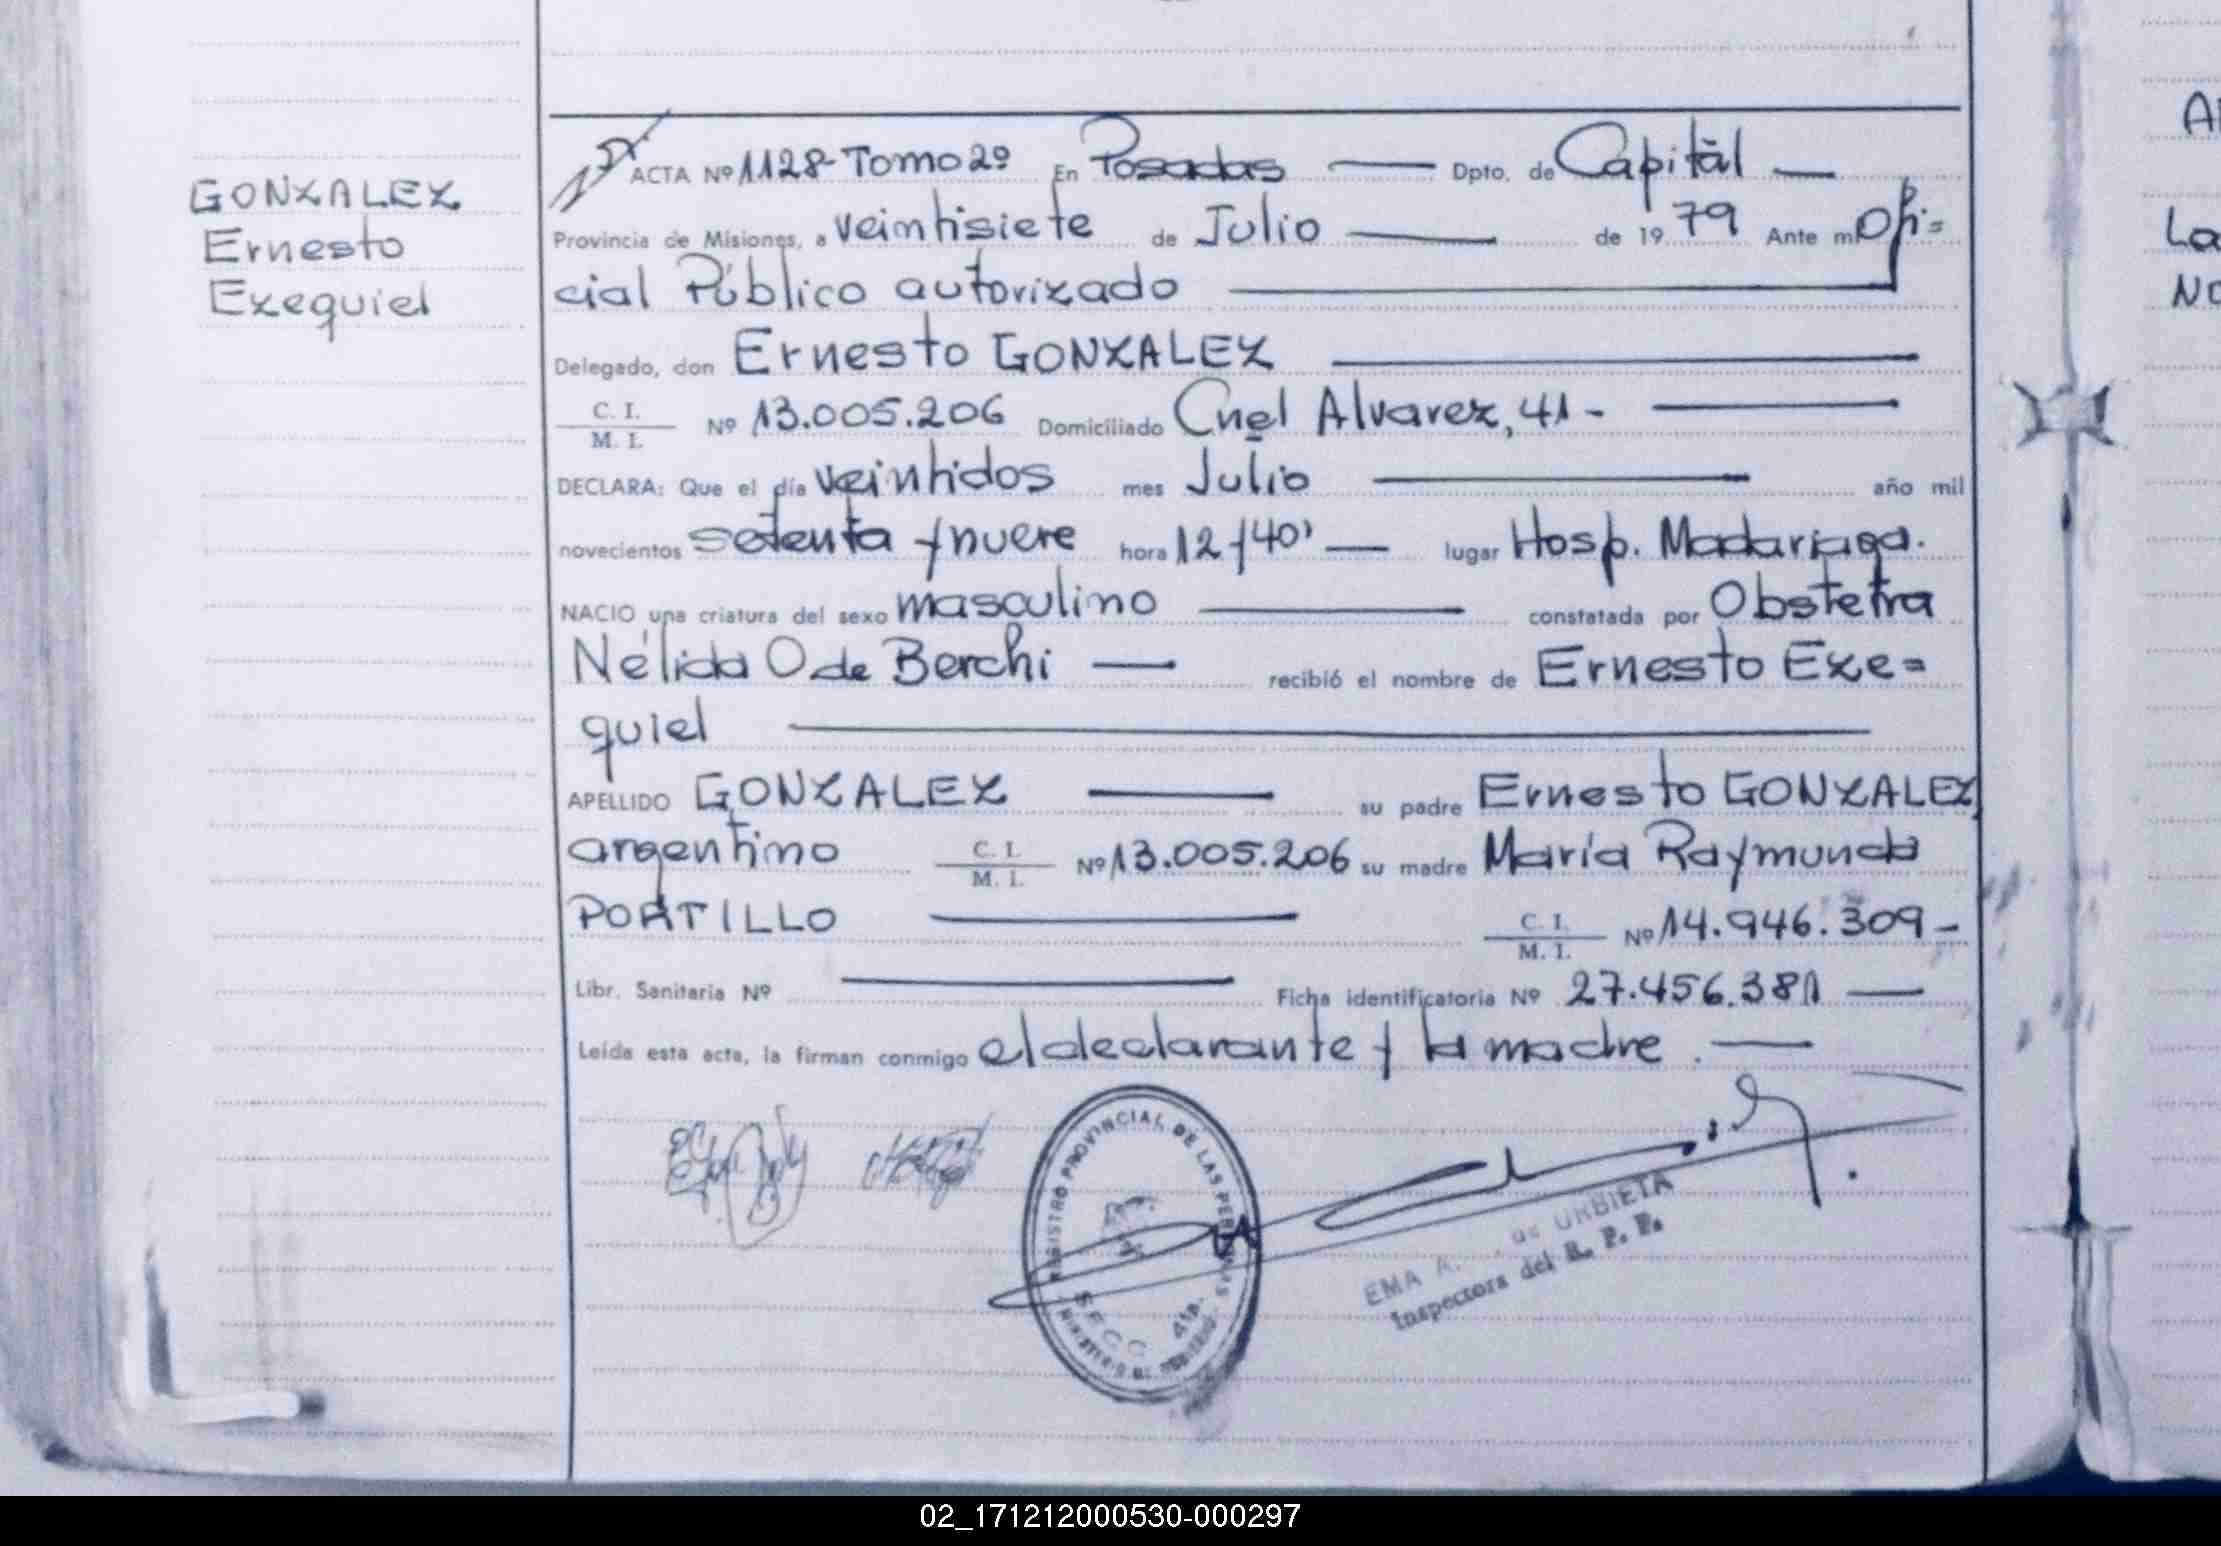 GONZALEZ
Ernesto
Exequiel
ACTA Nº 1128-Tomo 2º En Posadas Dpto. de Capital
Provincia de Misiones, a veintisiete de Julio de 1979 Ante mi Ofi=
cial Público autorizado
Delegado, don Ernesto GONZALEZ
C. I.
M. I. Nº 13.005.206 Domiciliado Cnel Alvarez, 41-
DECLARA: Que el día veintidos mes Julio año mil
novecientos setenta y nueve hora 12 y 40' lugar Hosp. Madariaga.
NACIO una criatura del sexo masculino constatada por Obstetra
Nélida O de Berchi recibió el nombre de Ernesto Exe=
quiel
APELLIDO GONZALEZ su padre Ernesto GONZALEZ
argentino C. I. M. I. Nº 13.005.206 su madre María Raymunda
PORTILLO C. I. M. I. Nº 14.946.309-
Libr. Sanitaria Nº Ficha identificatoria Nº 27.456.381
Leída esta acta, la firman conmigo el declarante y la madre.
REGISTRO PROVINCIAL DE LAS PERSONAS
SECC. 4ta.
MINISTERIO DE GOBIERNO
EMA A. de URBIETA
Inspectora del R. P. P.
La
NO
02_171212000530-000297